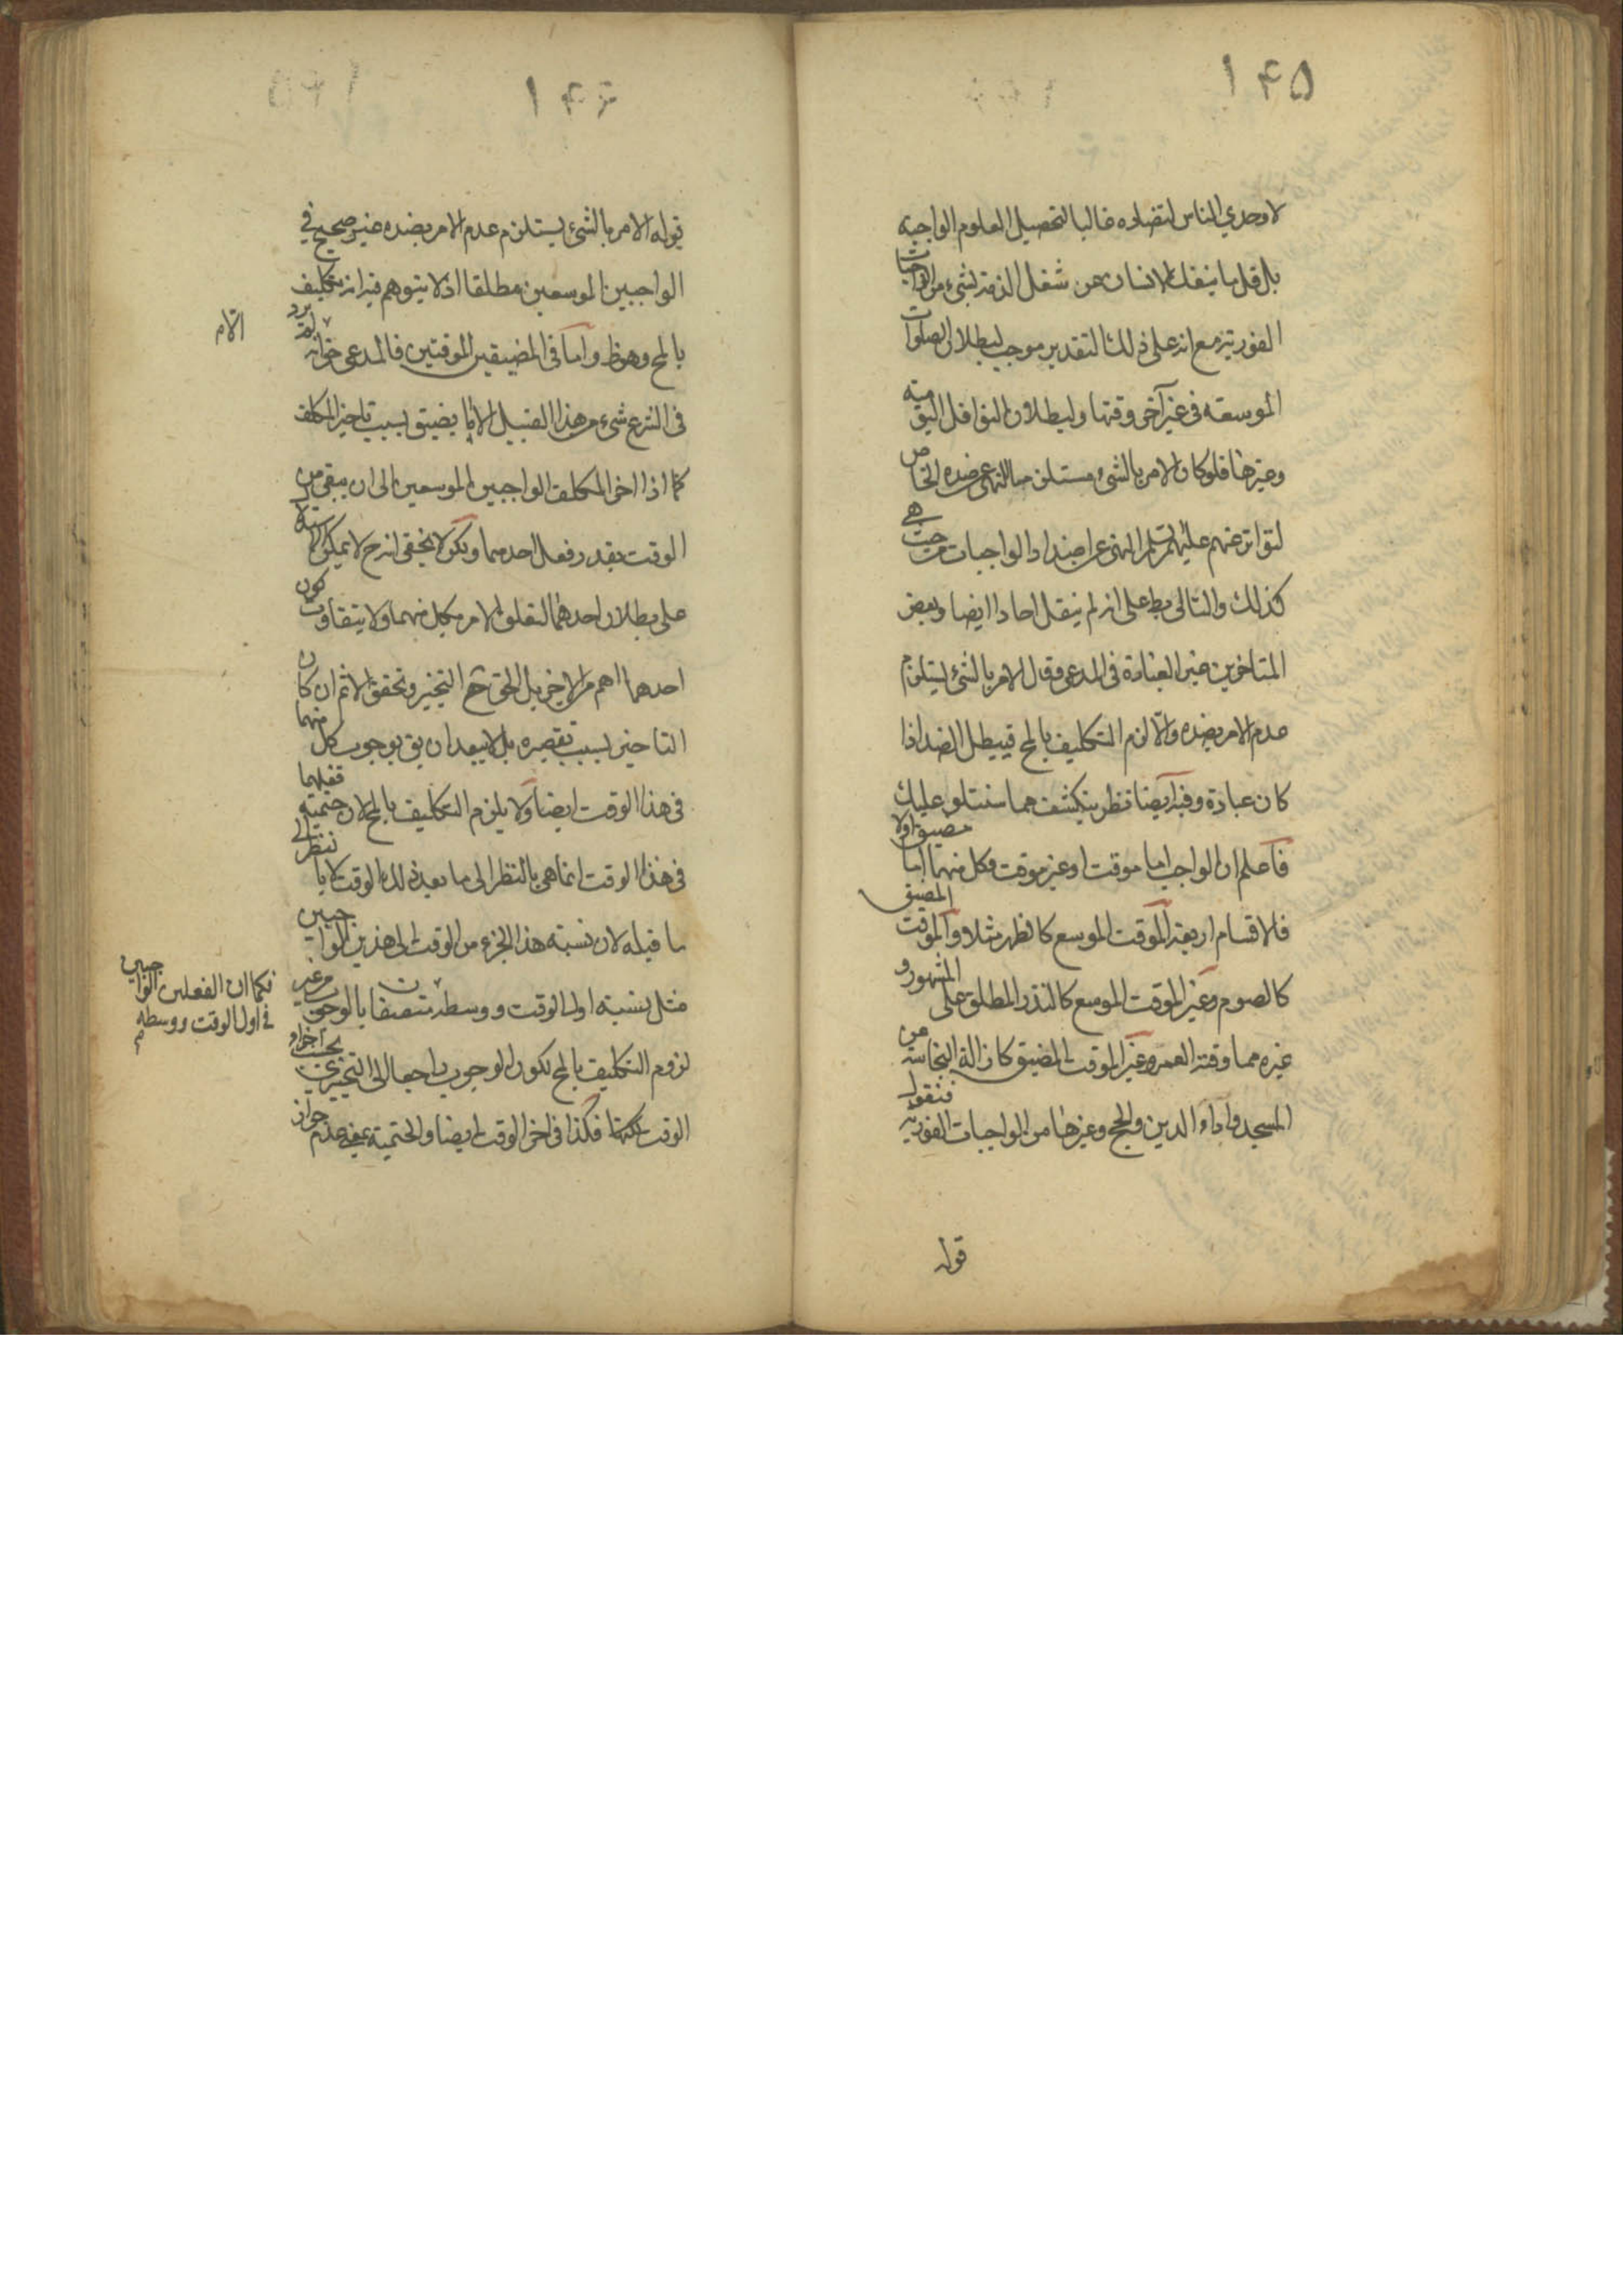 ۱۴۵
لاوحدي الناس لتضاده غالبا لتحصيل العلوم الواجبة
بل قل ما ينفك الانسان عن شغل الذمة بشيء من الواجبات
الفورية مع انه على ذلك التقدير موجب لبطلان الصلوات
الموسعة في غير آخر وقتها ولبطلان النوافل اليومية
وغيرها فلو كان الامر بالشيء مستلزما للنهي عن ضده الخاص
لتواتر عنهم عليهم السلم النهي عن اضداد الواجبات من حيث هي
كذلك والتالي بط على انه لم ينقل احادا ايضا وبعض
المتاخرين غير العبارة في المدعى وقال الامر بالشيء يستلزم
عدم الامر بضده والا لزم التكليف بالمح فيبطل الضد اذا
كان عبادة وفيه ايضا نظر ينكشف مما سنتلو عليك
فاعلم ان الواجب اما موقت او غير موقت وكل منهما اما مضيق اولا
فالاقسام اربعة الموقت الموسع كالظهر مثلا والموقت المضيق
كالصوم وغير الموقت الموسع كالنذر المطلق على المشهور و
غيره مما وقته العمر وغير الموقت المضيق كازالة النجاسة من
المسجد واداء الدين والحج وغيرها من الواجبات الفورية فنقول
قوله
۱۴۶
قوله الامر بالشيء يستلزم عدم الامر بضده غير صحيح في
الواجبين الموسعين مطلقا اذ لا يتوهم فيه انه تكليف
بالمح وهو ظ واما في المضيقين الموقتين فالمدعى حق الا انه لم يرد
في الشرع شيء من هذا القبيل الا ما يضيق بسبب تاخير المكلف
كما اذا اخر المكلف الواجبين الموسعين الى ان يبقى من
الوقت بقدر فعل احدهما ولكن لا يخفى انه ح لا يمكن الاستدلال
على بطلان احدهما لتعلق الامر بكل منهما ولا يتفاوت كون
احدهما اهم من الاخر بل الحق ح التخيير وتحقق الاثم ان كان
التاخير بسبب تقصيره بل لا يبعد ان يق بوجوب كل منهما
في هذا الوقت ايضا ولا يلزم التكليف بالمح لان حتمية فعلهما
في هذا الوقت انما هي بالنظر الى ما بعد ذلك الوقت لا بالنظر الى
ما قبله لان نسبة هذا الجزء من الوقت الى هذين الواجبين
مثل نسبة اول الوقت ووسطه متصفان بالوجوب من غير
لزوم التكليف بالمح لكون الوجوب راجعا الى التخيير بحسب اجزاء
الوقت فكذا في اخر الوقت ايضا والحتمية بمعنى عدم جواز
فكما ان الفعلين الواجبين
في اول الوقت ووسطه